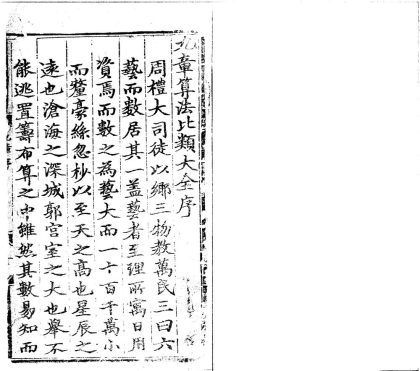 九章算法比類大全序
周禮大司徒以鄉三物教萬民三曰六
藝而數居其一蓋藝者至理所寓日用
資焉而數之為藝大而一十百千萬小
而釐毫絲忽杪以至天之高也星辰之
遠也滄海之深城郭宮室之大也舉不
能逃置籌布算之中雖然其數易知而